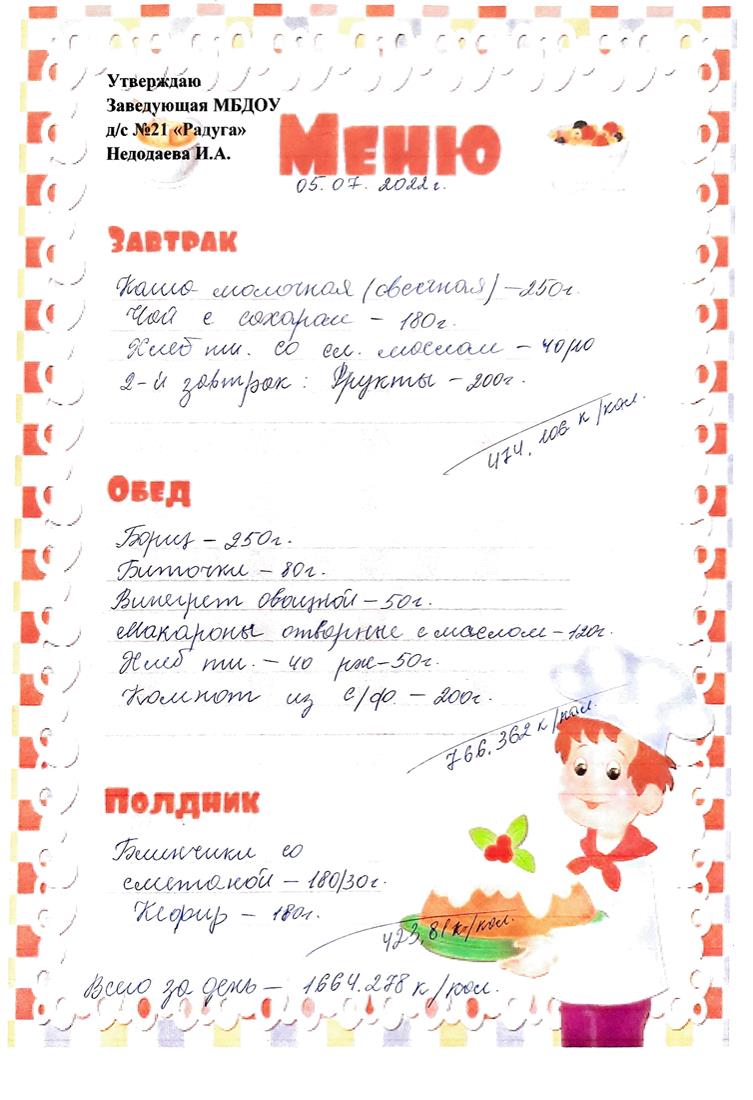 Утверждаю
Заведующая МБДОУ
д/с №21 «Радуга»
Недодаева И.А.
Меню
05.07.2022г.
Завтрак
Каша молочная (овсяная) – 250г.
Чай с сахаром – 180г.
Хлеб пш. со сл. маслом – 40/10
2-й завтрак: Фрукты – 200г.
474.106 к/кал.
Обед
Борщ – 250г.
Биточки – 80г.
Винегрет овощной – 50г.
Макароны отварные с маслом – 120г.
Хлеб пш. – 40 рж – 50г.
Компот из с/ф. – 200г.
766.362 к/кал.
Полдник
Блинчики со
сметаной – 180/30г.
Кефир – 180г.
423,81 к/кал.
Всего за день – 1664.278 к/кал.